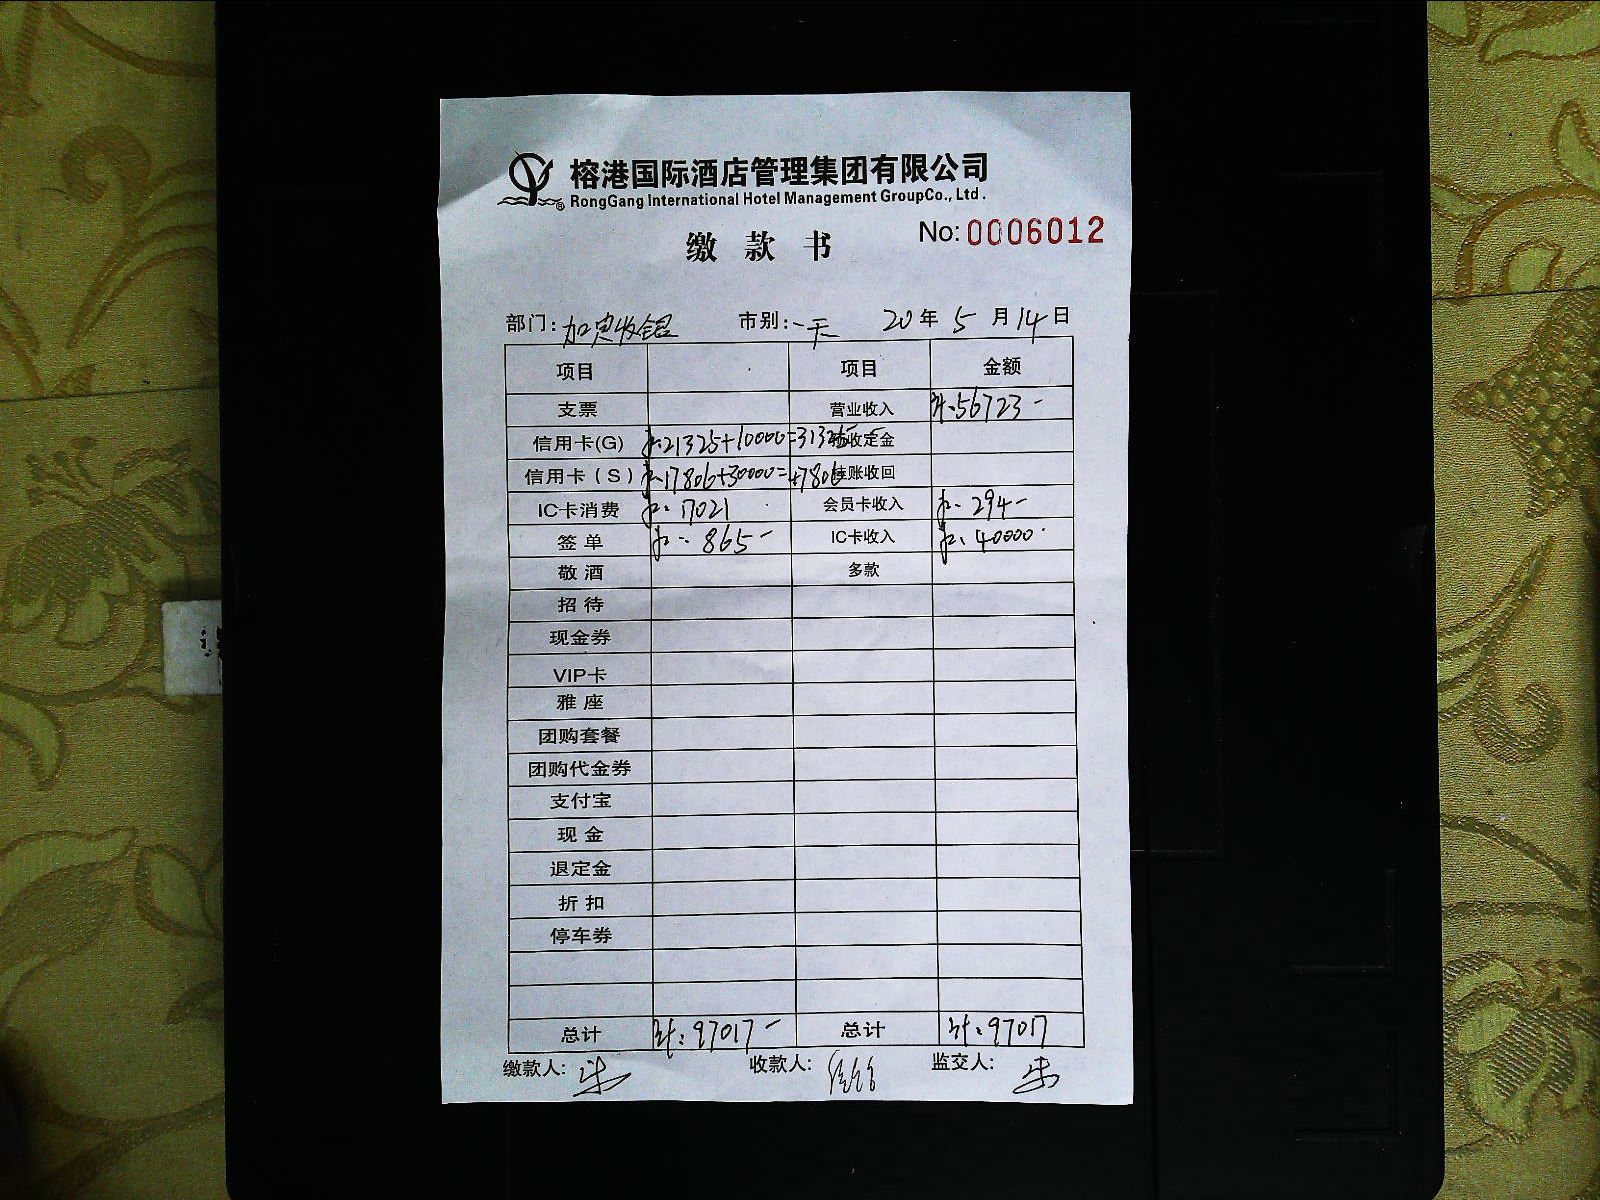 榕港国际酒店管理集团有限公司
RongGang International Hotel Management GroupCo., Ltd.
缴 款 书
No: 0006012
部门: 加宾收银 市别: 一天 20 年 5 月 14 日
项目 项目 金额
支票 营业收入 计:56723-
信用卡(G) 计:21325+10000=31325- 预收定金
信用卡(S) 计:17806+30000=47806 挂账收回
IC卡消费 计:17021 会员卡收入 计:294-
签单 计:865- IC卡收入 计:40000
敬酒 多款
招待
现金券
VIP卡
雅座
团购套餐
团购代金券
支付宝
现金
退定金
折扣
停车券
总计 计:97017- 总计 计:97017
缴款人: 收款人: 监交人: